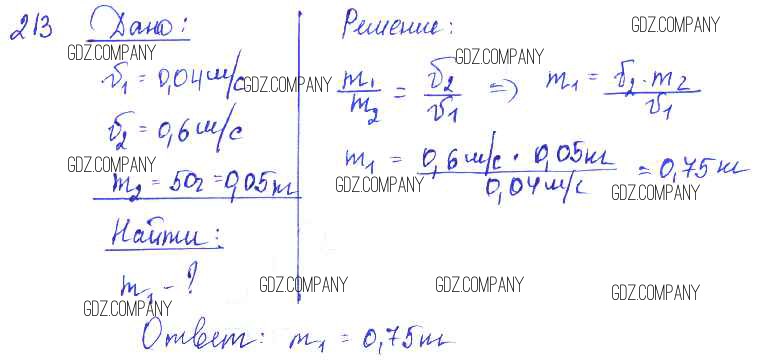 213 Дано:
GDZ.COMPANY
v₁ = 0,04 м/с
GDZ.COMPANY
v₂ = 0,6 м/с
GDZ.COMPANY
m₂ = 50г = 0,05 кг
Найти:
m₁ - ?
GDZ.COMPANY
Решение:
GDZ.COMPANY
GDZ.COMPANY
m₁/m₂ = v₂/v₁ => m₁ = v₂ · m₂/v₁
GDZ.COMPANY
m₁ = 0,6 м/с · 0,05 кг/0,04 м/с = 0,75 кг
GDZ.COMPANY
GDZ.COMPANY
GDZ.COMPANY
GDZ.COMPANY
GDZ.COMPANY
Ответ: m₁ = 0,75 кг